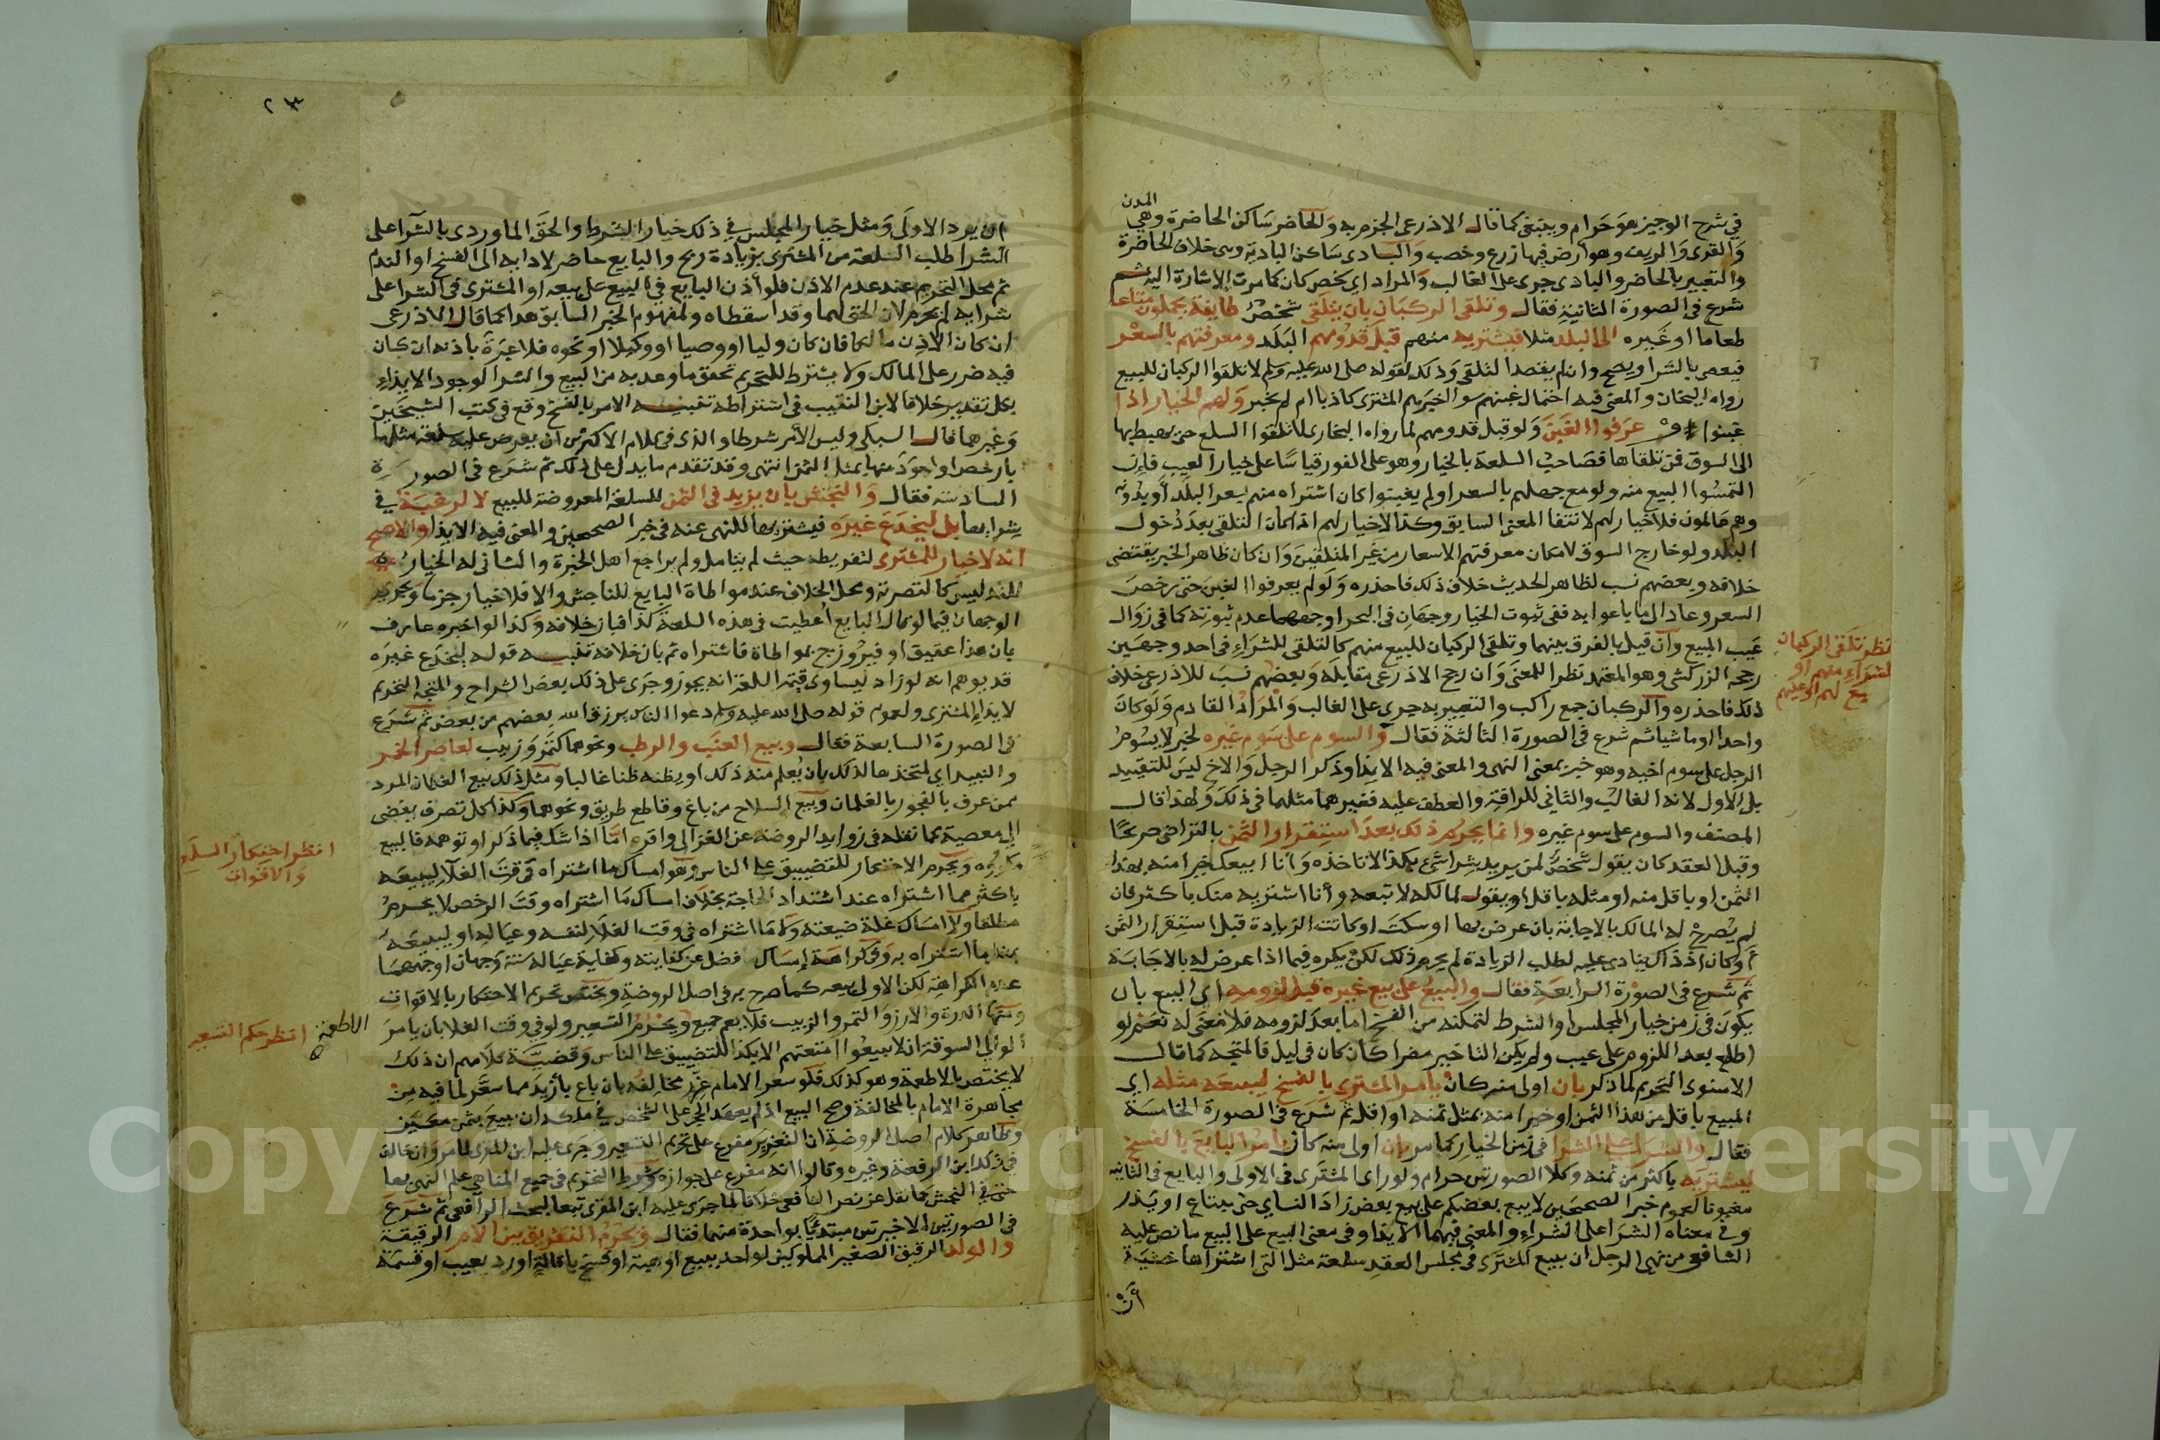 المدن
في شرح الوجيز هو حرام وينبغي كما قال الاذرعي الجزم به والحاضر ساكن الحاضرة وهي
والقرى والريف وهو ارض فيها زرع وخصب والبادي ساكن البادية وهي خلاف الحاضرة
والتعبير بالحاضر والبادي جرى على الغالب والمراد اي شخص كان كما مرت الاشارة اليه ثم
شرع في الصورة الثانية فقال وتلقي الركبان بان يتلقى شخص طايفة يحملون متاعا
طعاما او غيره الى البلد مثلا فيشتريه منهم قبل قدومهم البلد ومعرفتهم بالسعر
فيعصي بالشرا ويصح وان لم يقصد التلقي وذلك لقوله صلى الله عليه وسلم لا تلقوا الركبان للبيع
رواه الشيخان والمعنى فيه احتمال غبنهم سوا اخبرهم المشتري كاذبا ام لم يخبر ولهم الخيار اذا
غبنوا و عرفوا الغبن ولو قبل قدومهم لما رواه البخاري لا تلقوا السلع حتى يهبط بها
الى السوق فمن تلقاها فصاحب السلعة بالخيار وهو على الفور قياسا على خيار العيب فان
التمسوا البيع منه ولو مع جهلهم بالسعر او لم يغبنوا كان اشتراه منهم بسعر البلد او بدونه
وهم عالمون فلا خيار لهم لانتفا المعنى السابق وكذا لا خيار لهم اذا كان التلقي بعد دخول
البلد ولو خارج السوق لامكان معرفتهم الاسعار من غير المتلقين وان كان ظاهر الخبر يقتضي
خلافه وبعضهم نسب لظاهر الحديث خلاف ذلك فاحذره ولو لم يعرفوا الغبن حتى رخص
السعر وعاد الى ما باعوا به ففي ثبوت الخيار وجهان في البحر اوجههما عدم ثبوته كما في زوال
عيب المبيع وان قيل بالفرق بينهما وتلقي الركبان للبيع منهم كالتلقي للشراء في احد وجهين
رجحه الزركشي وهو المعتمد نظرا للمعنى وان رجح الاذرعي مقابله وبعضهم نسب للاذرعي خلاف
ذلك فاحذره والركبان جمع راكب والتعبير به جرى على الغالب والمراد القادم ولو كان
واحدا او ماشيا ثم شرع في الصورة الثالثة فقال والسوم على سوم غيره لخبر لا يسوم
الرجل على سوم اخيه وهو خبر بمعنى النهي والمعنى فيه الايذا وذكر الرجل والاخ ليس للتقييد
بل الاول لانه الغالب والثاني للرافة والعطف عليه فغيرهما مثلهما في ذلك ولهذا قال
المصنف والسوم على سوم غيره وانما يحرم ذلك بعد استقرار الثمن بالتراضي صريحا
وقبل العقد كان يقول شخص لمن يريد شراشي بكذا لا تاخذه وانا ابيعك خيرا منه بهذا
الثمن او باقل منه او مثله باقل او يقول لمالكه لا تبعه وانا اشتريه منك باكثر فان
لم يصرح له المالك بالاجابة بان عرض بها او سكت او كانت الزيادة قبل استقرار الثمن
او كان اذ ذاك ينادى عليه لطلب الزيادة لم يحرم ذلك لكن يكره فيما اذا عرض له بالاجابة
ثم شرع في الصورة الرابعة فقال والبيع على بيع غيره قبل لزومه اي البيع بان
يكون في زمن خيار المجلس او الشرط لتمكنه من الفسخ اما بعد لزومه فلا معنى له نعم لو
اطلع بعد اللزوم على عيب ولم يكن التاخير مضرا كان كان في ليل فالمتجه كما قال
الاسنوي التحريم لما ذكر بان اولى منه كان يامر المشتري بالفسخ ليبيعه مثله اي
المبيع باقل من هذا الثمن او خيرا منه بمثل ثمنه او اقل ثم شرع في الصورة الخامسة
فقال والشراء على الشرا في زمن الخيار كما مر بان اولى منه كان يامر البايع بالفسخ
ليشتريه باكثر من ثمنه وكلا الصورتين حرام ولو راى المشتري في الاولى والبايع في الثانية
مغبونا لعموم خبر الصحيحين لا يبيع بعضكم على بيع بعض زاد النساي حتى يبتاع او يذر
وفي معناه الشرا على الشراء والمعنى فيهما الايذا وفي معنى البيع على البيع ما نص عليه
الشافعي من نهي الرجل ان يبيع المشتري في مجلس العقد سلعة مثل التي اشتراها خشية
ان
نظر تلقي الركبان
لشراء منهم او
بيع لهم او عليهم
٢٣
ان يرد الاولى ومثل خيار المجلس في ذلك خيار الشرط والحق الماوردي بالشرا على
الشرا طلب السلعة من المشتري بزيادة ربح والبايع حاضر لادايه الى الفسخ او الندم
ثم محل التحريم عند عدم الاذن فلو اذن البايع في البيع على بيعه او المشتري في الشرا على
شرايه لم يحرم لان الحق لهما وقد اسقطاه ولمفهوم الخبر السابق هذا كما قال الاذرعي
ان كان الاذن مالكا فان كان وليا او وصيا او وكيلا او نحوه فلا عبرة باذنه ان كان
فيه ضرر على المالك ولا يشترط للتحريم تحقق ما وعد به من البيع والشرا لوجود الايذاء
بكل تقدير خلافا لابن النقيب في اشتراطه تنبيه الامر بالفسخ وقع في كتب الشيخين
وغيرهما قال السبكي وليس الامر شرطا والذي في كلام الاكثرين ان يعرض عليه سلعة مثلها
بارخص او اجود منها بمثل الثمن انتهى وقد تقدم ما يدل على ذلك ثم شرع في الصورة
السادسة فقال والنجش بان يزيد في الثمن للسلعة المعروضة للبيع لا لرغبة في
شرايها بل ليخدع غيره فيشتريها للنهي عنه في خبر الصحيحين والمعنى فيه الايذا والاصح
انه لا خيار للمشتري لتفريطه حيث لم يتامل ولم يراجع اهل الخبرة والثاني له الخيار
لكنه ليس كالتصرية ومحل الخلاف عند مواطاة البايع للناجش والا فلا خيار جزما ويجري
الوجهان فيما لو قال البايع اعطيت في هذه السلعة كذا فبان خلافه وكذا لو اخبره عارف
بان هذا عقيق او فيروزج بمواطاة فاشتراه ثم بان خلافه تنبيه قوله ليخدع غيره
قد يوهم انه لو زاد ليساوي قيمة السلعة انه يجوز وجرى على ذلك بعض الشراح والمتجه التحريم
لايذاء المشتري ولعموم قوله صلى الله عليه وسلم دعوا الناس يرزق الله بعضهم من بعض ثم شرع
في الصورة السابعة فقال وبيع العنب والرطب ونحوهما كتمر وزبيب لعاصر الخمر
والنبيذ اي لمتخذها لذلك بان يعلم منه ذلك او يظنه ظنا غالبا ومثل ذلك بيع الغلمان المرد
ممن عرف بالفجور بالغلمان وبيع السلاح من باغ وقاطع طريق ونحوهما وكذا كل تصرف يفضي
الى معصية كما نقله في زوايد الروضة عن الغزالي واقره اما اذا شك فيما ذكر او توهمه فالبيع
مكروه ويحرم الاحتكار للتضييق على الناس وهو امساك ما اشتراه في وقت الغلاء ليبيعه
باكثر مما اشتراه عند اشتداد الحاجة بخلاف امساك ما اشتراه وقت الرخص لا يحرم
مطلقا ولا امساك غلة ضيعته ولا ما اشتراه في وقت الغلا لنفسه وعياله او ليبيعه
بمثل ما اشتراه به وفي كراهة امساك ما فضل عن كفايته وكفاية عياله سنة وجهان اوجههما
عدم الكراهة لكن الاولى بيعه كما صرح به في اصل الروضة ويختص تحريم الاحتكار بالاقوات
ومنها الذرة والارز والتمر والزبيب فلا يعم جميع ويحرم التسعير ولو في وقت الغلا بان يامر
الوالي السوقة ان لا يبيعوا امتعتهم الا بكذا للتضييق على الناس وقضية كلامهم ان ذلك
لا يختص بالاطعمة وهو كذلك فلو سعر الامام عزر مخالفه بان باع بازيد مما سعر لما فيه من
مجاهرة الامام بالمخالفة وصح البيع اذ لم يعهد الحجر على الشخص في ملكه ان يبيع بثمن معين
وظاهر كلام اصل الروضة ان التعزير مفرع على تحريم التسعير وجرى عليه ابن المقري للامر وان خالف
في ذلك ابن الرفعة وغيره وقالوا انه مفرع على جوازه وشرط التحريم في جميع المناهي علم النهي بها
حتى في النجش كما نقل عن نص الشافعي خلافا لما جرى عليه ابن المقري تبعا لبحث الرافعي ثم شرع
في الصورتين الاخيرتين مبتديا بواحدة منهما فقال ويحرم التفريق بين الام الرقيقة
والولد الرقيق الصغير المملوكين لواحد ببيع او هبة او فسخ باقالة او رد بعيب او قسمة
انظر احتكار السلع
والاقوات
الاطعمة
انظر حكم التسعير
Copy King S University